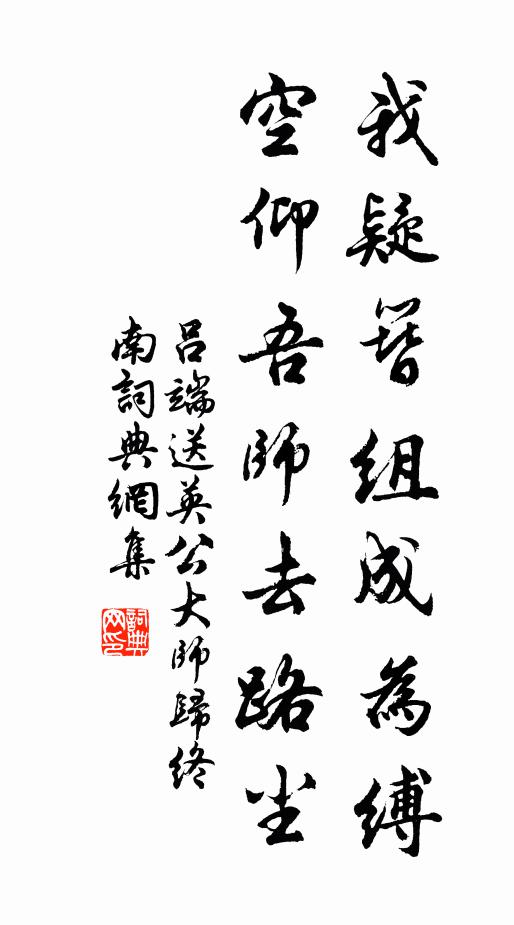 我疑簪組成為縛
空仰吾師去路尘
呂端送英公大師歸終
南詞典網集
詞典
网印